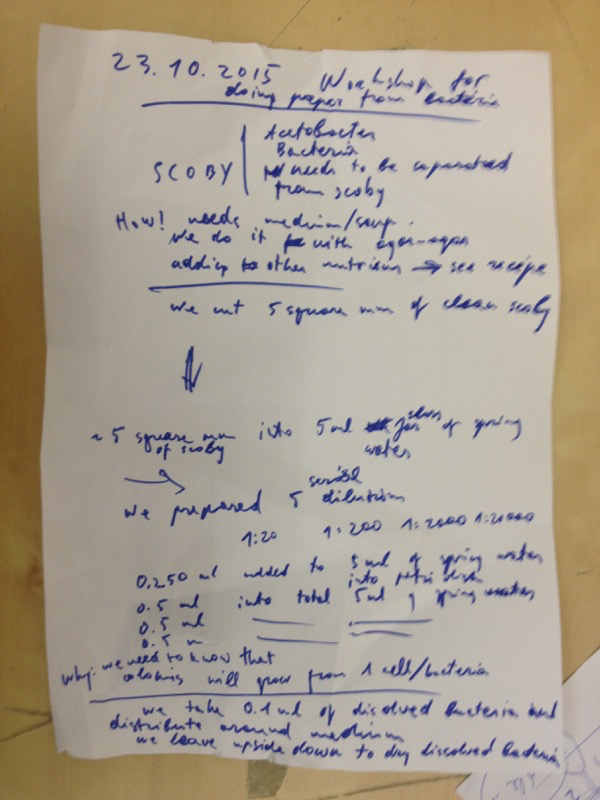 23.10.2015 Workshop for
doing paper from bacteria
Acetobacter
Bacteria
SCOBY needs to be separated
from scoby
How! needs medium/soup.
we do it with agar-agar
adding to other nutriens → see recipe
we cut 5 square mm of clean scoby
~ 5 square mm into 5 ml of spring
of scoby water
we prepared 5 serial dilutions
1:20 1:200 1:2000 1:20000
0.250 ml added to 5 ml of spring water
into petri dish
0.5 ml into total 5 ml of spring water
0.5 ml
0.5 m
why: we need to know that
colonies will grow from 1 cell/bacteria
we take 0.1 ml of disolved bacteria and
distribute around medium
we leave upside down to dry disolved bacteria